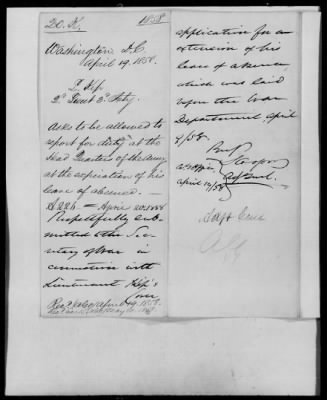 20. K. 1858
Washington D.C.
April 19. 1858.
L. Kip.
2d Lieut 3d Arty.
Asks to be allowed to
report for duty at the
Head Quarters of the Army
at the expiration of his
leave of absence. —
Respectfully sub-
mitted to the Sec-
retary of War in
connection with
Lieutenant Kip's
Over
application for an
extension of his
leave of absence,
which was laid
upon the War
Department, April
9/58.
S. Cooper
Adjt Genl.
A. G. Office
April